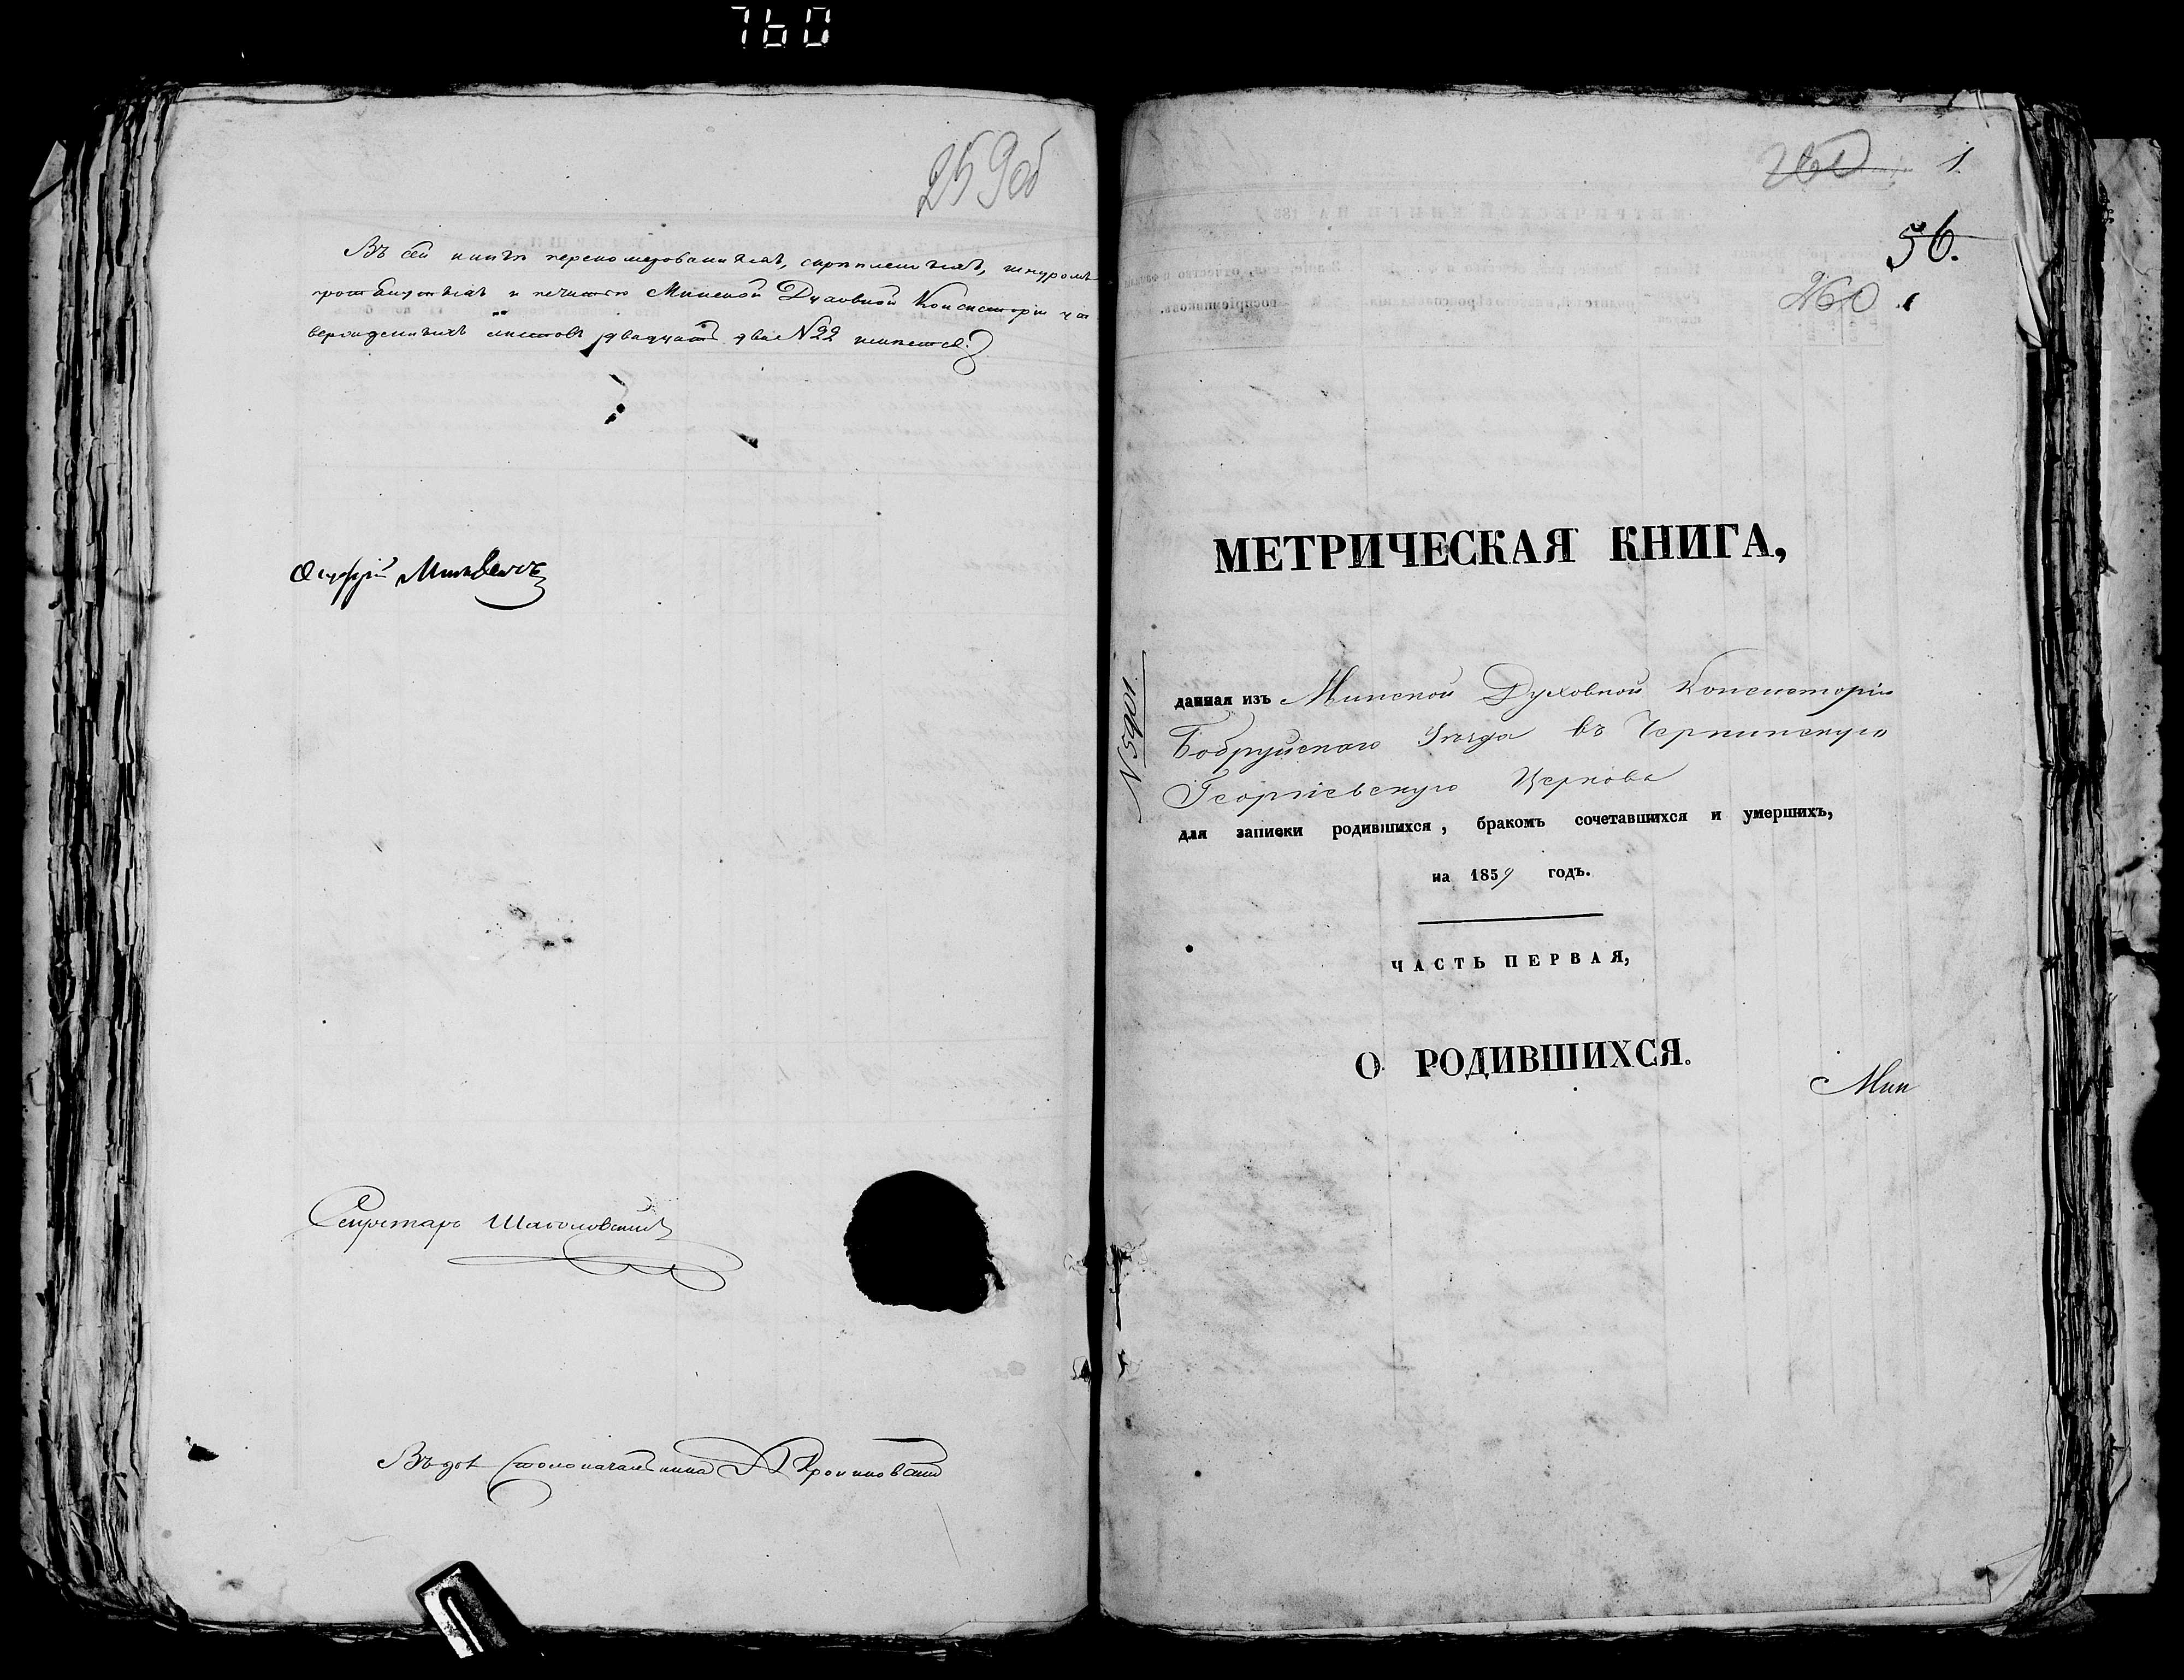 760
259об
Въ сей книгѣ перенумерованныхъ, скрѣпленныхъ, шнуромъ
и печатью Минской Духовной Консисторіи
листовъ двадцать два №22 имѣется.
Секретарь
Столоначальника
260 1
56.
260
МЕТРИЧЕСКАЯ КНИГА,
№ 5901.
данная изъ Минской Духовной Консисторіи
Бобруйскаго Уѣзда въ Чернинскую
Георгіевскую Церковь
для записки родившихся, бракомъ сочетавшихся и умершихъ,
на 1859 годъ.
ЧАСТЬ ПЕРВАЯ,
О РОДИВШИХСЯ.
Мин